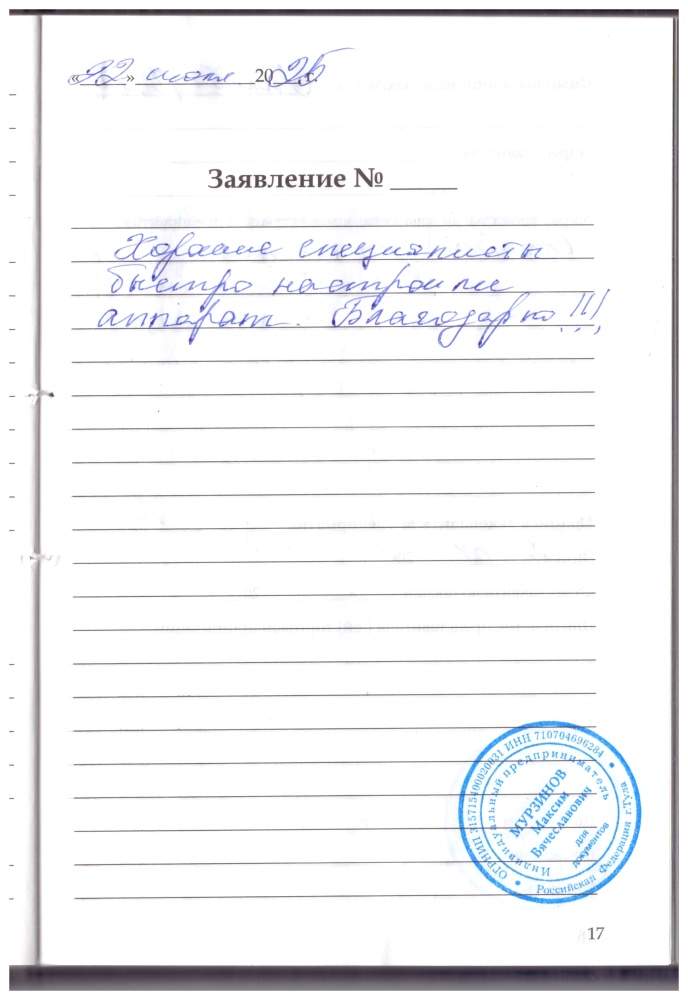 «22» июля 2025 г.
Заявление № ______
Хорошие специалисты
быстро настроили
аппарат. Благодарю!!!
ОГРНИП 315715400020031 ИНН 710704696284
Индивидуальный предприниматель
МУРЗИНОВ
Максим
Вячеславович
для
документов
Российская Федерация г.Тула
17